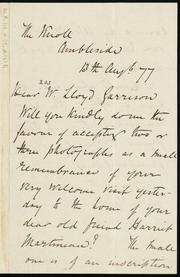 The Knoll
Ambleside
13th Augt. 77
Dear Mr Lloyd Garrison
Will you kindly do me the
favour of accepting two or
three photographs as a small
remembrance of your
very welcome visit yester-
day to the home of your
dear old friend Harriet
Martineau? The small
one is of an inscription